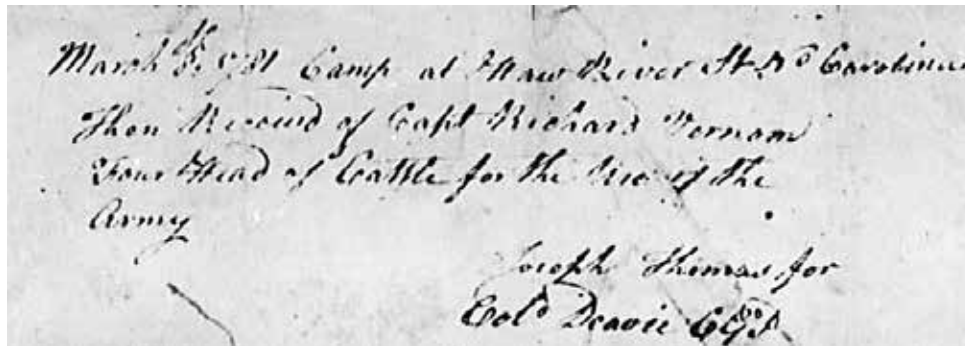 March 5th 1781 Camp at Haw River St No Carolina
Then Receivd of Capt Richard Vernam
Four Head of Cattle for the Use of the
Army
Joseph Thomas for
Colo Deavie